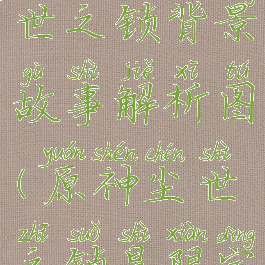 世之锁背景
gù shì jiě xī tú
故事解析图
yuán shén chén shì
(原神尘世
zhī suǒ shì xiàn dìng
之锁是限定